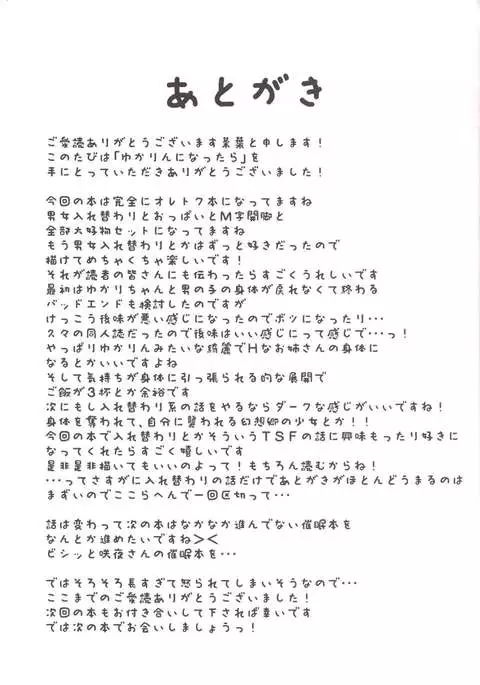 あとがき
ご愛読ありがとうございます景葉と申します！
このたびは「ゆかりんになったら」を
手にとっていただきありがとうございました！
今回の本は完全にオレトク本になってますね
男女入れ替わりとおっぱいとM字開脚と
全部大好物セットになってますね
もう男女入れ替わりとかはずっと好きだったので
描けてめちゃくちゃ楽しいです！
それが読者の皆さんにも伝わったらすごくうれしいです
最初はゆかりちゃんと男の子の身体が戻れなくて終わる
バッドエンドも検討したのですが
けっこう後味が悪い感じになったのでボツになったり・・・
久々の同人誌だったので後味はいい感じにって感じで・・・っ！
やっぱりゆかりんみたいな綺麗でHなお姉さんの身体に
なるとかいいですよね
そして気持ちが身体に引っ張られる的な展開で
ご飯が3杯とか余裕です
次にもし入れ替わり系の話をやるならダークな感じがいいですね！
身体を奪われて、自分に襲われる幻想郷の少女とか！！
今回の本で入れ替わりとかそういうTSFの話に興味もったり好きに
なってくれたらすごく嬉しいです
是非是非描いてもいいのよって！もちろん読むからね！
・・・ってさすがに入れ替わりの話だけであとがきがほとんどうまるのは
まずいのでここらへんで一回区切って・・・
話は変わって次の本はなかなか進んでない催眠本を
なんとか進めたいですね＞＜
ビシッと咲夜さんの催眠本を・・・
ではそろそろ長すぎて怒られてしまいそうなので・・・
ここまでのご愛読ありがとうございました！
次回の本もお付き合いして下されば幸いです
では次の本でお会いしましょうっ！